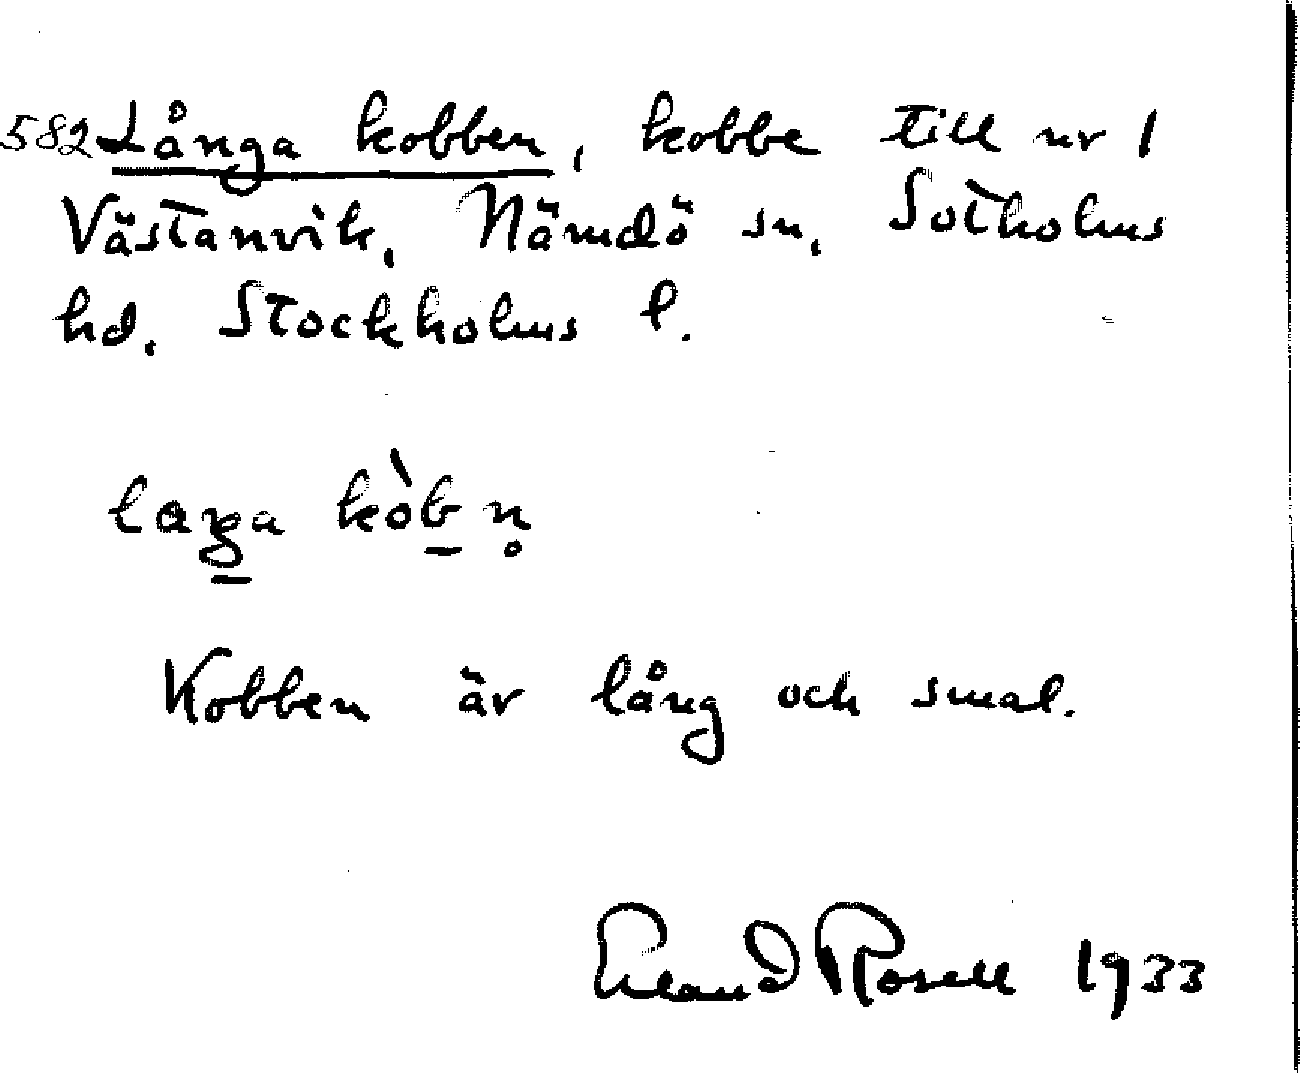 582 Långa kobben, kobbe till nr 1
Västanvik, Nämdö sn, Sotholms
hd. Stockholms l.
kòbn̥
Kobben är lång och smal.
Erland Rosell 1933